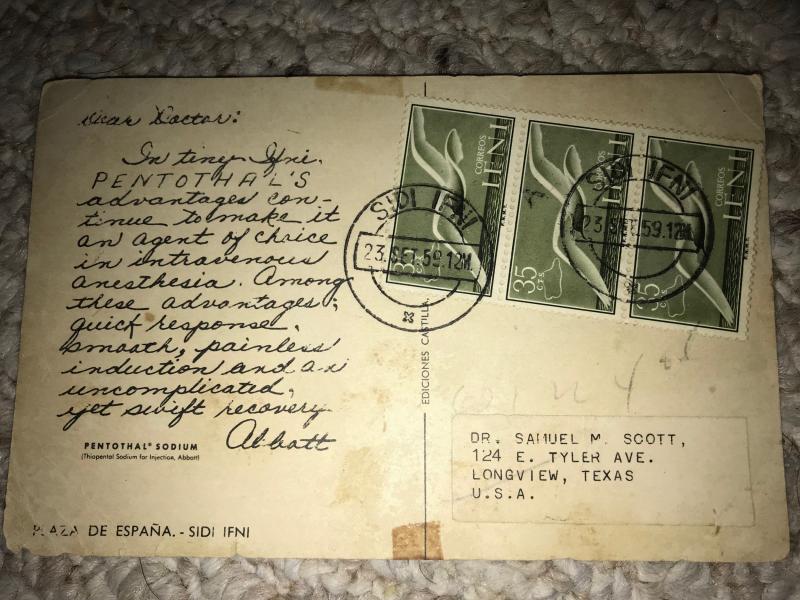 Dear Doctor:
In tiny Ifni,
PENTOTHAL'S
advantages con-
tinue to make it
an agent of choice
in intravenous
anesthesia. Among
these advantages:
quick response,
smooth, painless
induction and an
uncomplicated,
yet swift recovery.
Abbott
PENTOTHAL® SODIUM
(Thiopental Sodium for Injection, Abbott)
PLAZA DE ESPAÑA. - SIDI IFNI
EDICIONES CASTILLA.
CORREOS
IFNI
35
CTS.
CORREOS
IFNI
35
CTS.
CORREOS
IFNI
35
CTS.
SIDI IFNI
23. SET. 59.12M.
SIDI IFNI
23. SET. 59.12M.
DR. SAMUEL M. SCOTT,
124 E. TYLER AVE.
LONGVIEW, TEXAS
U.S.A.